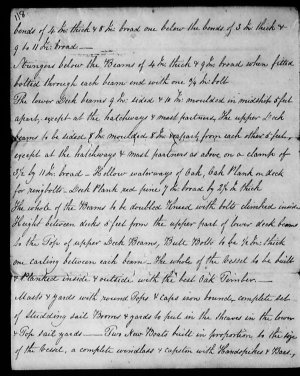 118
bends of 4 In: thick & 8 In: broad one below the bends of 3 In: thick &
9 to 11 In: broad
Stringers below the Beams of 4 In: thick & 9 In: broad when fitted
bolted through each beam end with one 3/4 In: bolt
The lower Deck beams 9 In: sided & 11 In: moulded in midship 5 feet
apart, except at the hatchways & mast partners, The upper Deck
beams to be sided 8 In: moulded 8 In: & apart from each other 5 feet,
except at the hatchways & mast partners as above on a clamp of
3 1/2 by 11 In: broad – Hollow waterways of Oak, Oak Plank on deck
for ringbolts – Deck Plank red pine 7 In: broad by 2 1/2 In: thick
The whole of the Beams to be doubled Kneed with bolts clinched inside
Height between decks 5 feet from the upper part of lower deck beams
to the Top of upper Deck Beams, Butt Bolts to be In: thick
one carling between each beam – The whole of the Vessel to be built
& Planked inside & outside with the best Oak Timber. –
Masts & yards with round Tops & Caps iron bound, complete set
of studding sail Booms & yards to put in the sheaves in the lower
& Top sail yards – Two New Boats built in proportion to the size
of the Vessel, a complete windlass & capstan with Handspikes & Bars,